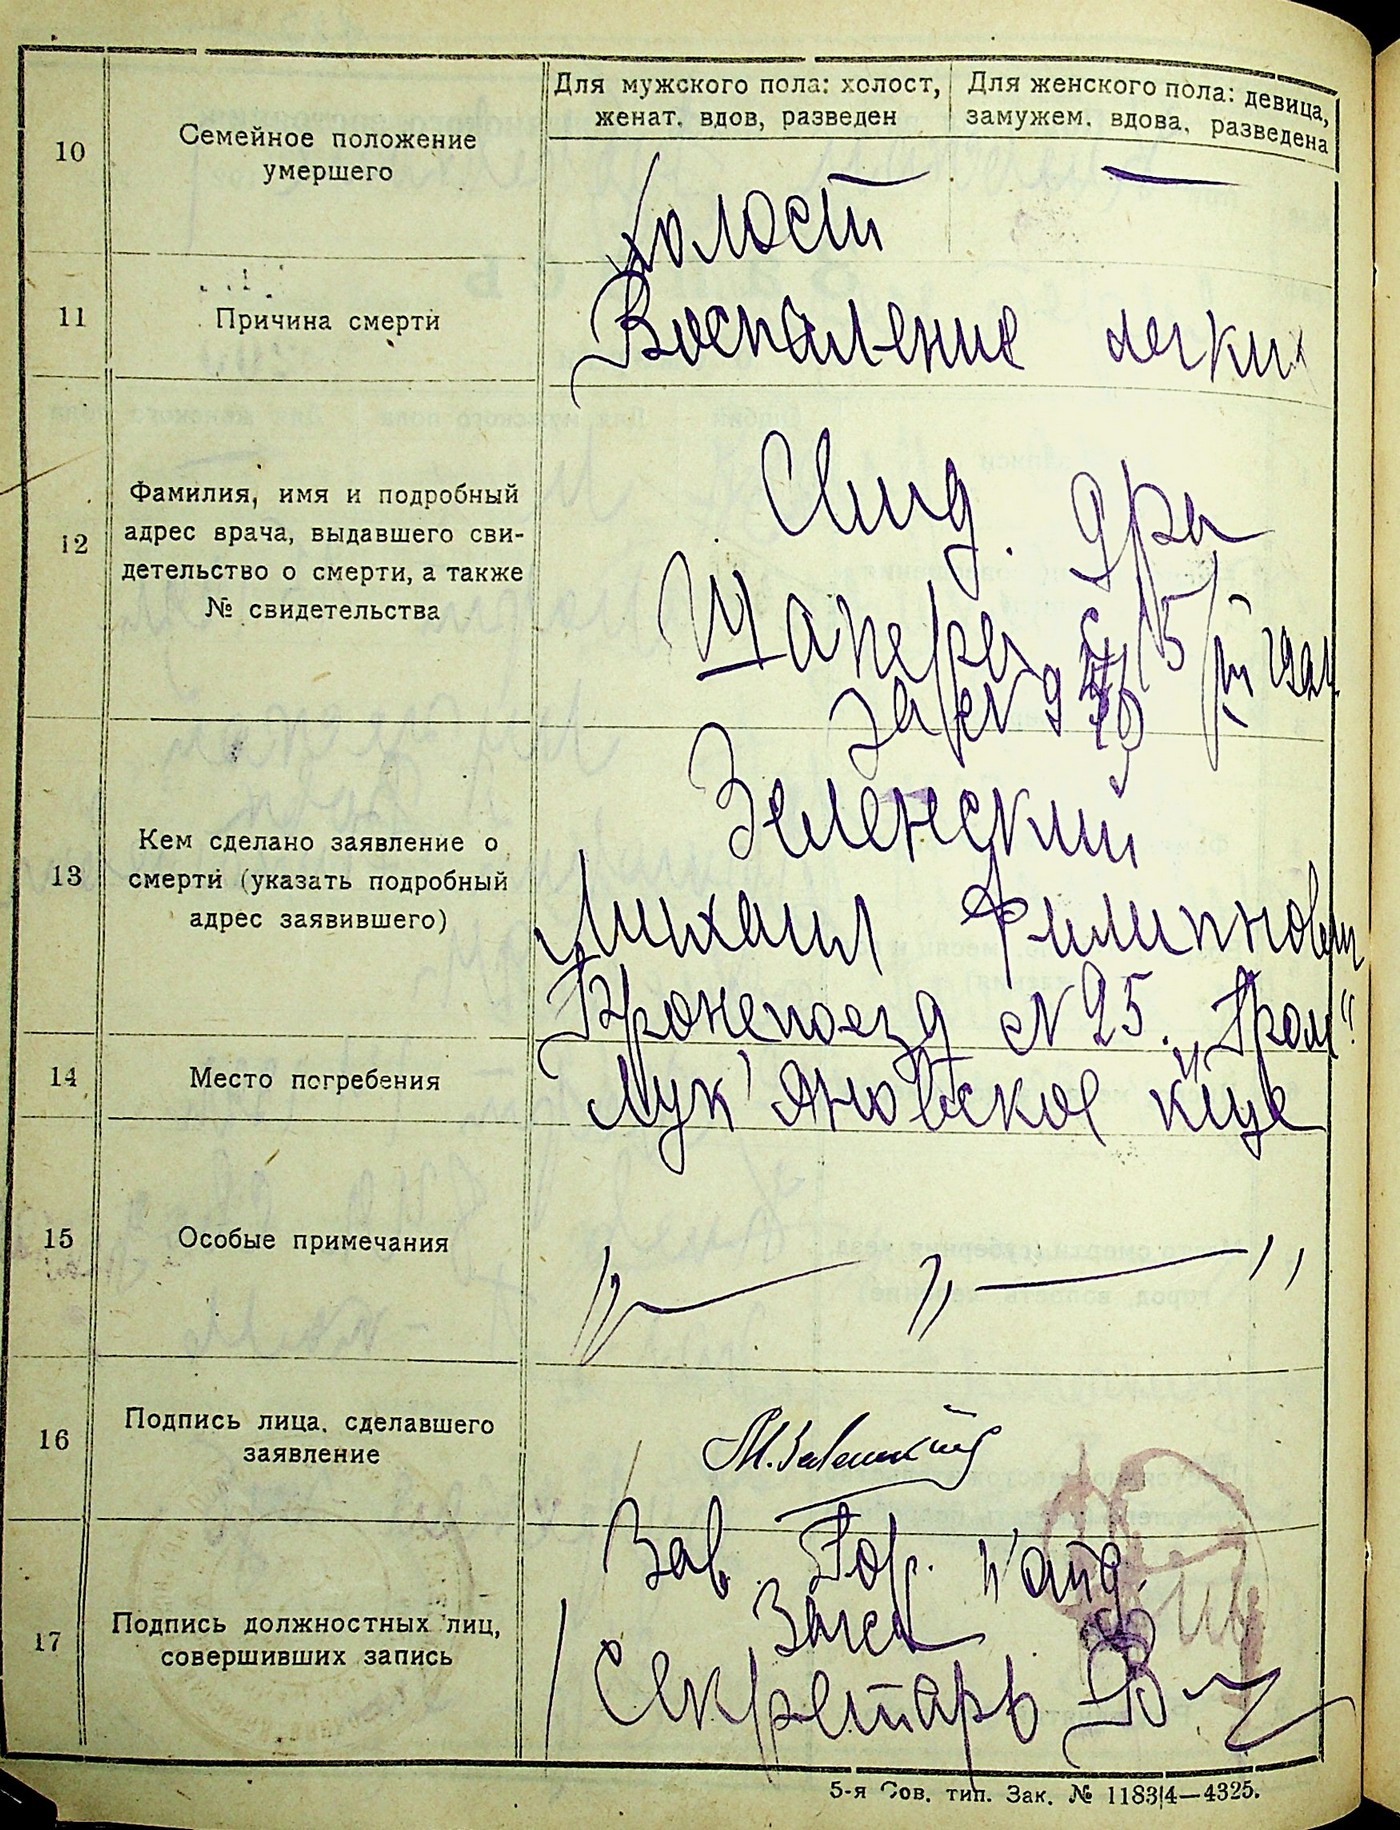 Для мужского пола: холост,
женат. вдов, разведен
Для женского пола: девица,
замужем. вдова. разведена
10
Семейное положение
умершего
холост
—
11
Причина смерти
Воспаление легких
12
Фамилия, имя и подробный
адрес врача, выдавшего сви-
детельство о смерти, а также
№ свидетельства
Свид. Дра
Щапера
за №
13
Кем сделано заявление о
смерти (указать подробный
адрес заявившего)
Зеленский
Михаил Филиппович
Бронепоезд № 25. „Гром“
14
Место погребения
Лук'яновское к'ще
15
Особые примечания
16
Подпись лица. сделавшего
заявление
М. Зеленский
17
Подпись должностных лиц,
совершивших запись
Зав. Гор.
Загса
Секретарь
5-я Сов. тип. Зак. № 1183|4—4325.